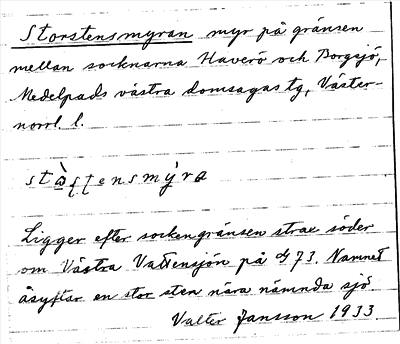 Storstensmyran myr på gränsen
mellan socknarna Haverö och Borgsjö,
Medelpads västra domsagas tg, Väster-
norrl. l.
Ligger efter sockengränsen strax söder
om Västra Vattensjön på 73. Namnet
åsyftar en stor sten nära nämnda sjö
Valter Jansson 1933